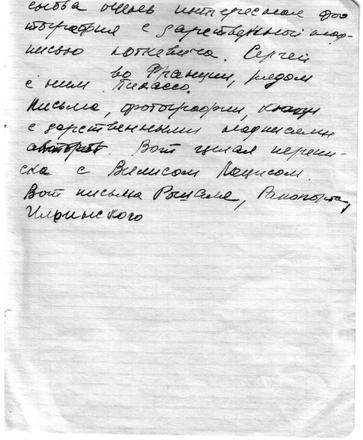 снова очень интересная фо
тография с дарственной над-
писью Юткевича. Сергей
во Франции, рядом
с ним Пикассо.
Письма, фотографии, книги
с дарственными надписями
авторов. Вот целая перепи-
ска с Вилисом Лацисом.
Вот письма Рыцаме, Рапопорта,
Ильинского